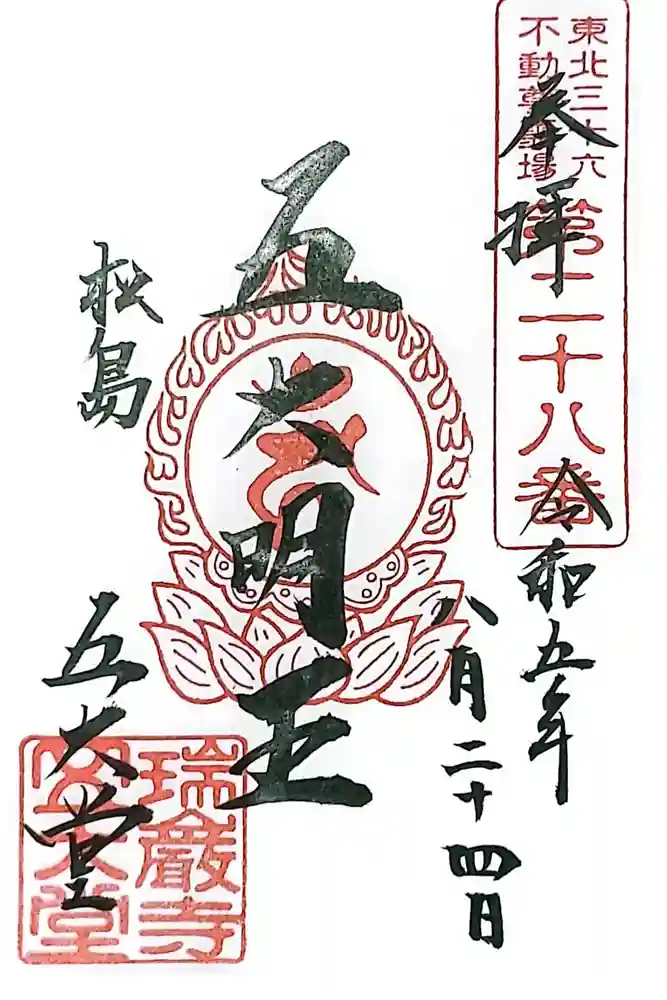 東北三十六
不動尊霊場
第二十八番
奉拝
令和五年
八月二十四日
五大明王
松島
五大堂
瑞巌寺
五大堂